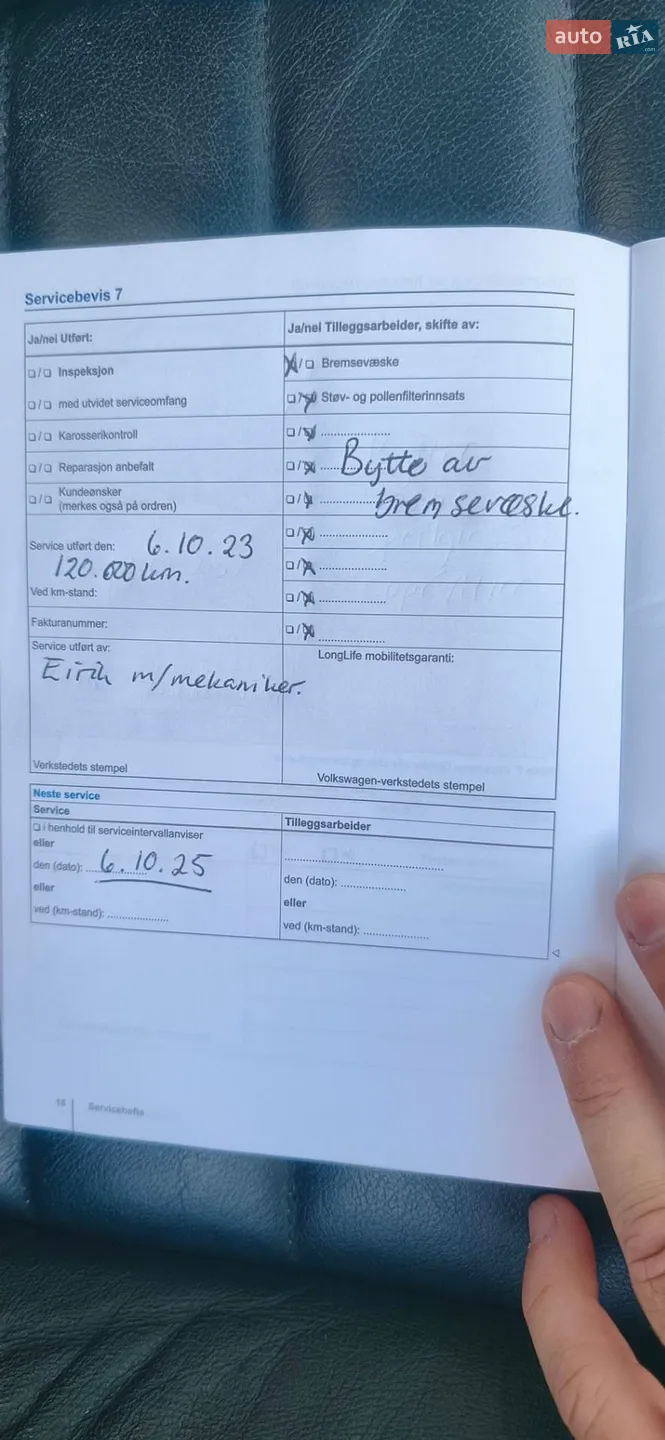 auto RIA .com
Servicebevis 7
Ja/nei Utført:
❑/❑ Inspeksjon
❑/❑ med utvidet serviceomfang
❑/❑ Karosserikontroll
❑/❑ Reparasjon anbefalt
❑/❑ Kundeønsker
(merkes også på ordren)
Service utført den: 6.10.23
120.000 km.
Ved km-stand:
Fakturanummer:
Service utført av:
Eirik m/mekaniker.
Verkstedets stempel
Ja/nei Tilleggsarbeider, skifte av:
X/❑ Bremsevæske
❑/X Støv- og pollenfilterinnsats
❑/X ....................
❑/X ...... Bytte av
❑/X .............. bremsevæske.
❑/X ....................
❑/X ....................
❑/X ....................
❑/X ....................
LongLife mobilitetsgaranti:
Volkswagen-verkstedets stempel
Neste service
Service
❑ i henhold til serviceintervallanviser
eller
den (dato): 6.10.25
eller
ved (km-stand): ..................
Tilleggsarbeider
..............................................
den (dato): ...................
eller
ved (km-stand): ...................
16 Servicehefte